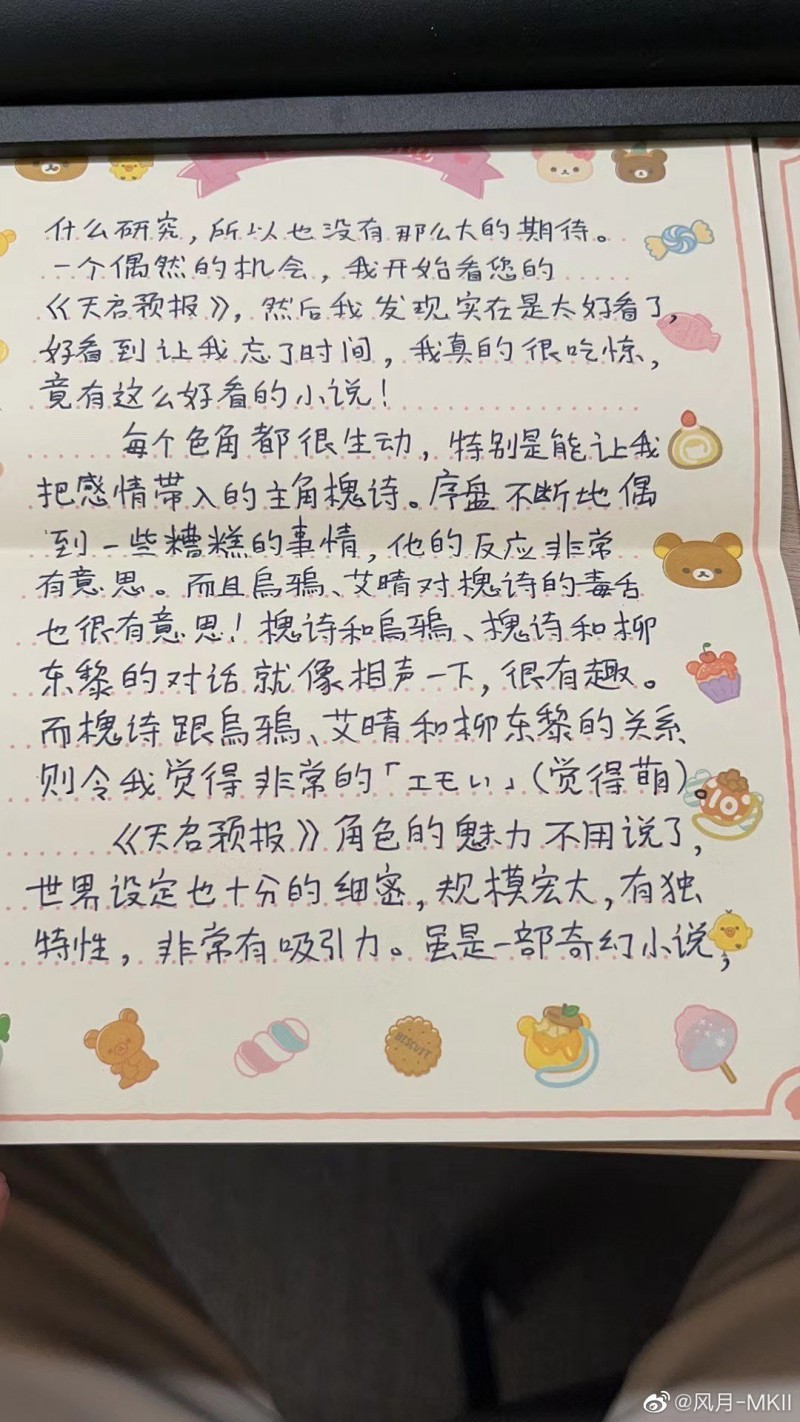 什么研究，所以也没有那么大的期待。
一个偶然的机会，我开始看您的
《天启预报》，然后我发现实在是太好看了，
好看到让我忘了时间，我真的很吃惊，
竟有这么好看的小说！
每个色角都很生动，特别是能让我
把感情带入的主角槐诗。序盘不断地偶
到一些糟糕的事情，他的反应非常
有意思。而且烏鴉、艾晴对槐诗的毒舌
也很有意思！槐诗和烏鴉、槐诗和柳
东黎的对话就像相声一下，很有趣。
而槐诗跟烏鴉、艾晴和柳东黎的关系
则令我觉得非常的「エモい」（觉得萌）。
《天启预报》角色的魅力不用说了，
世界设定也十分的细密，规模宏大，有独
特性，非常有吸引力。虽是一部奇幻小说，
BISCUIT
@风月-MKII